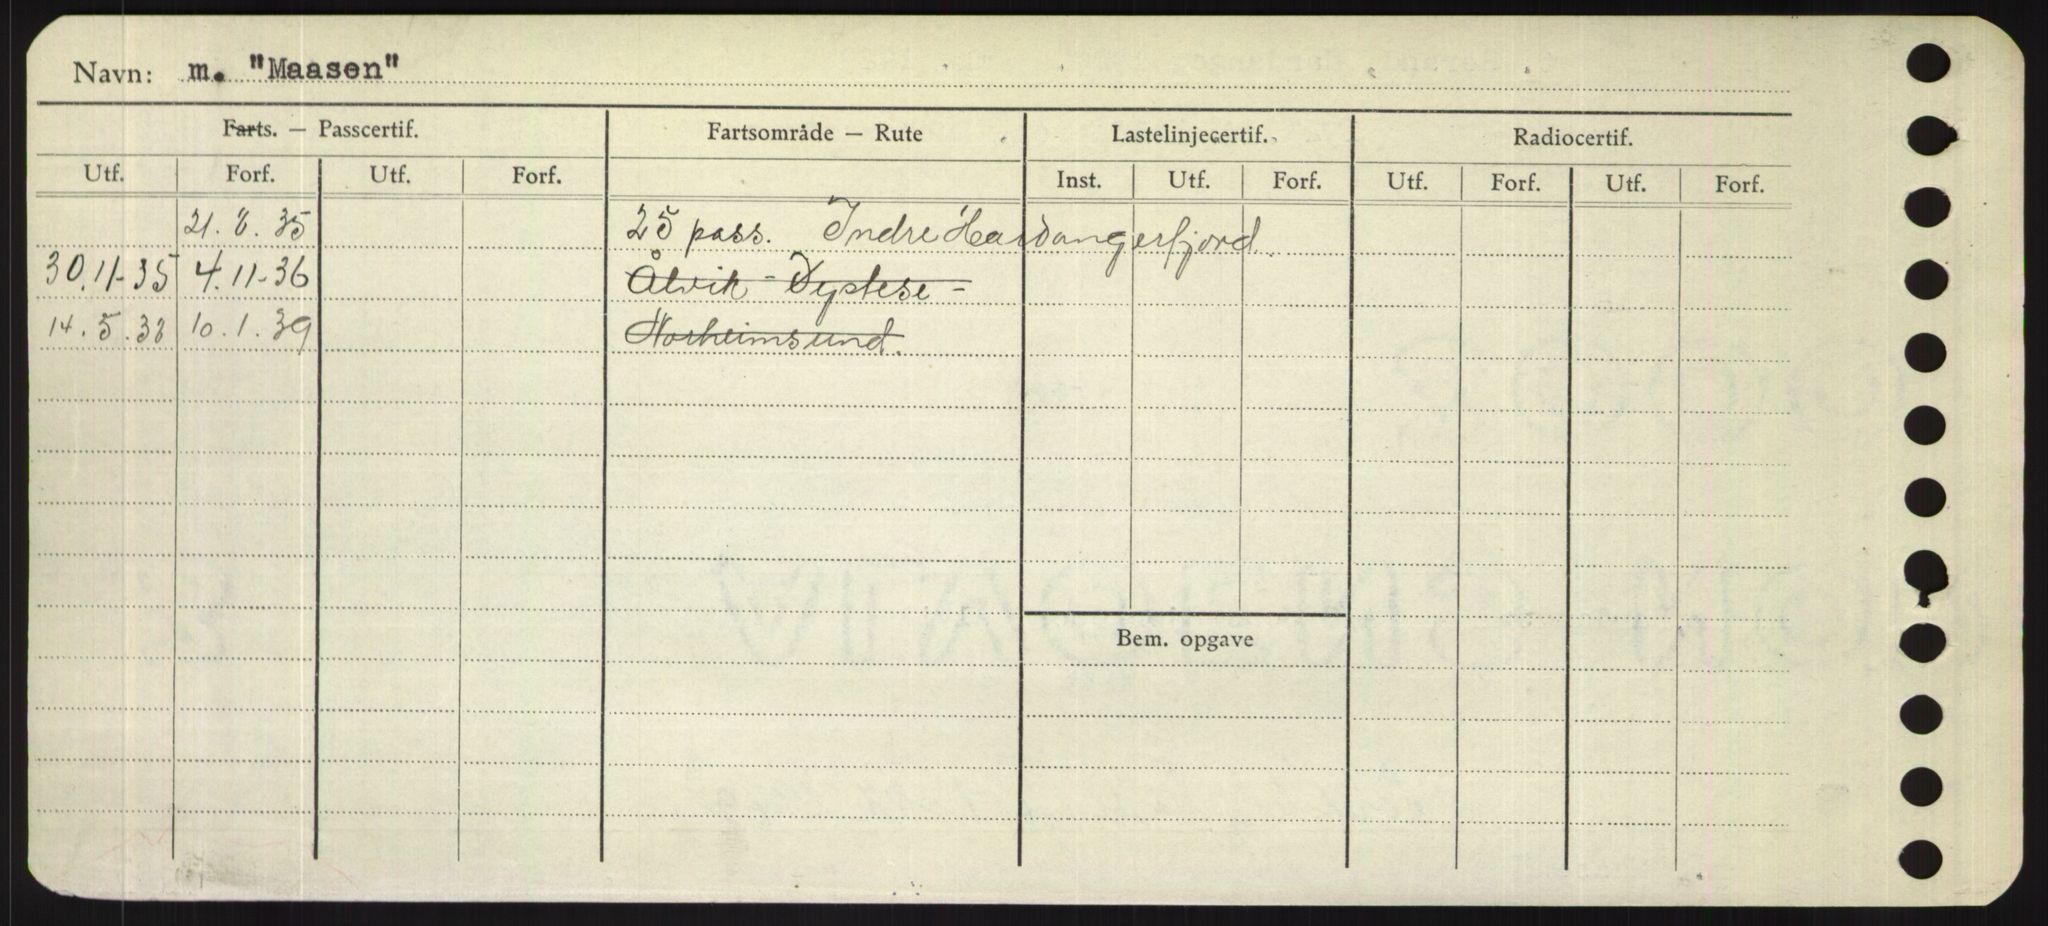 Navn: m. "Maasen"
Farts. — Passcertif. Fartsområde — Rute Lastelinjecertif. Radiocertif.
Utf. Forf. Utf. Forf. Inst. Utf. Forf. Utf. Forf. Utf. Forf.
21. 8. 35 25 pass. Indre Hardangerfjord.
30.11-35 4.11-36 Ålvik - Øystese -
14. 5. 38 10. 1. 39 Norheimsund.
Bem. opgave